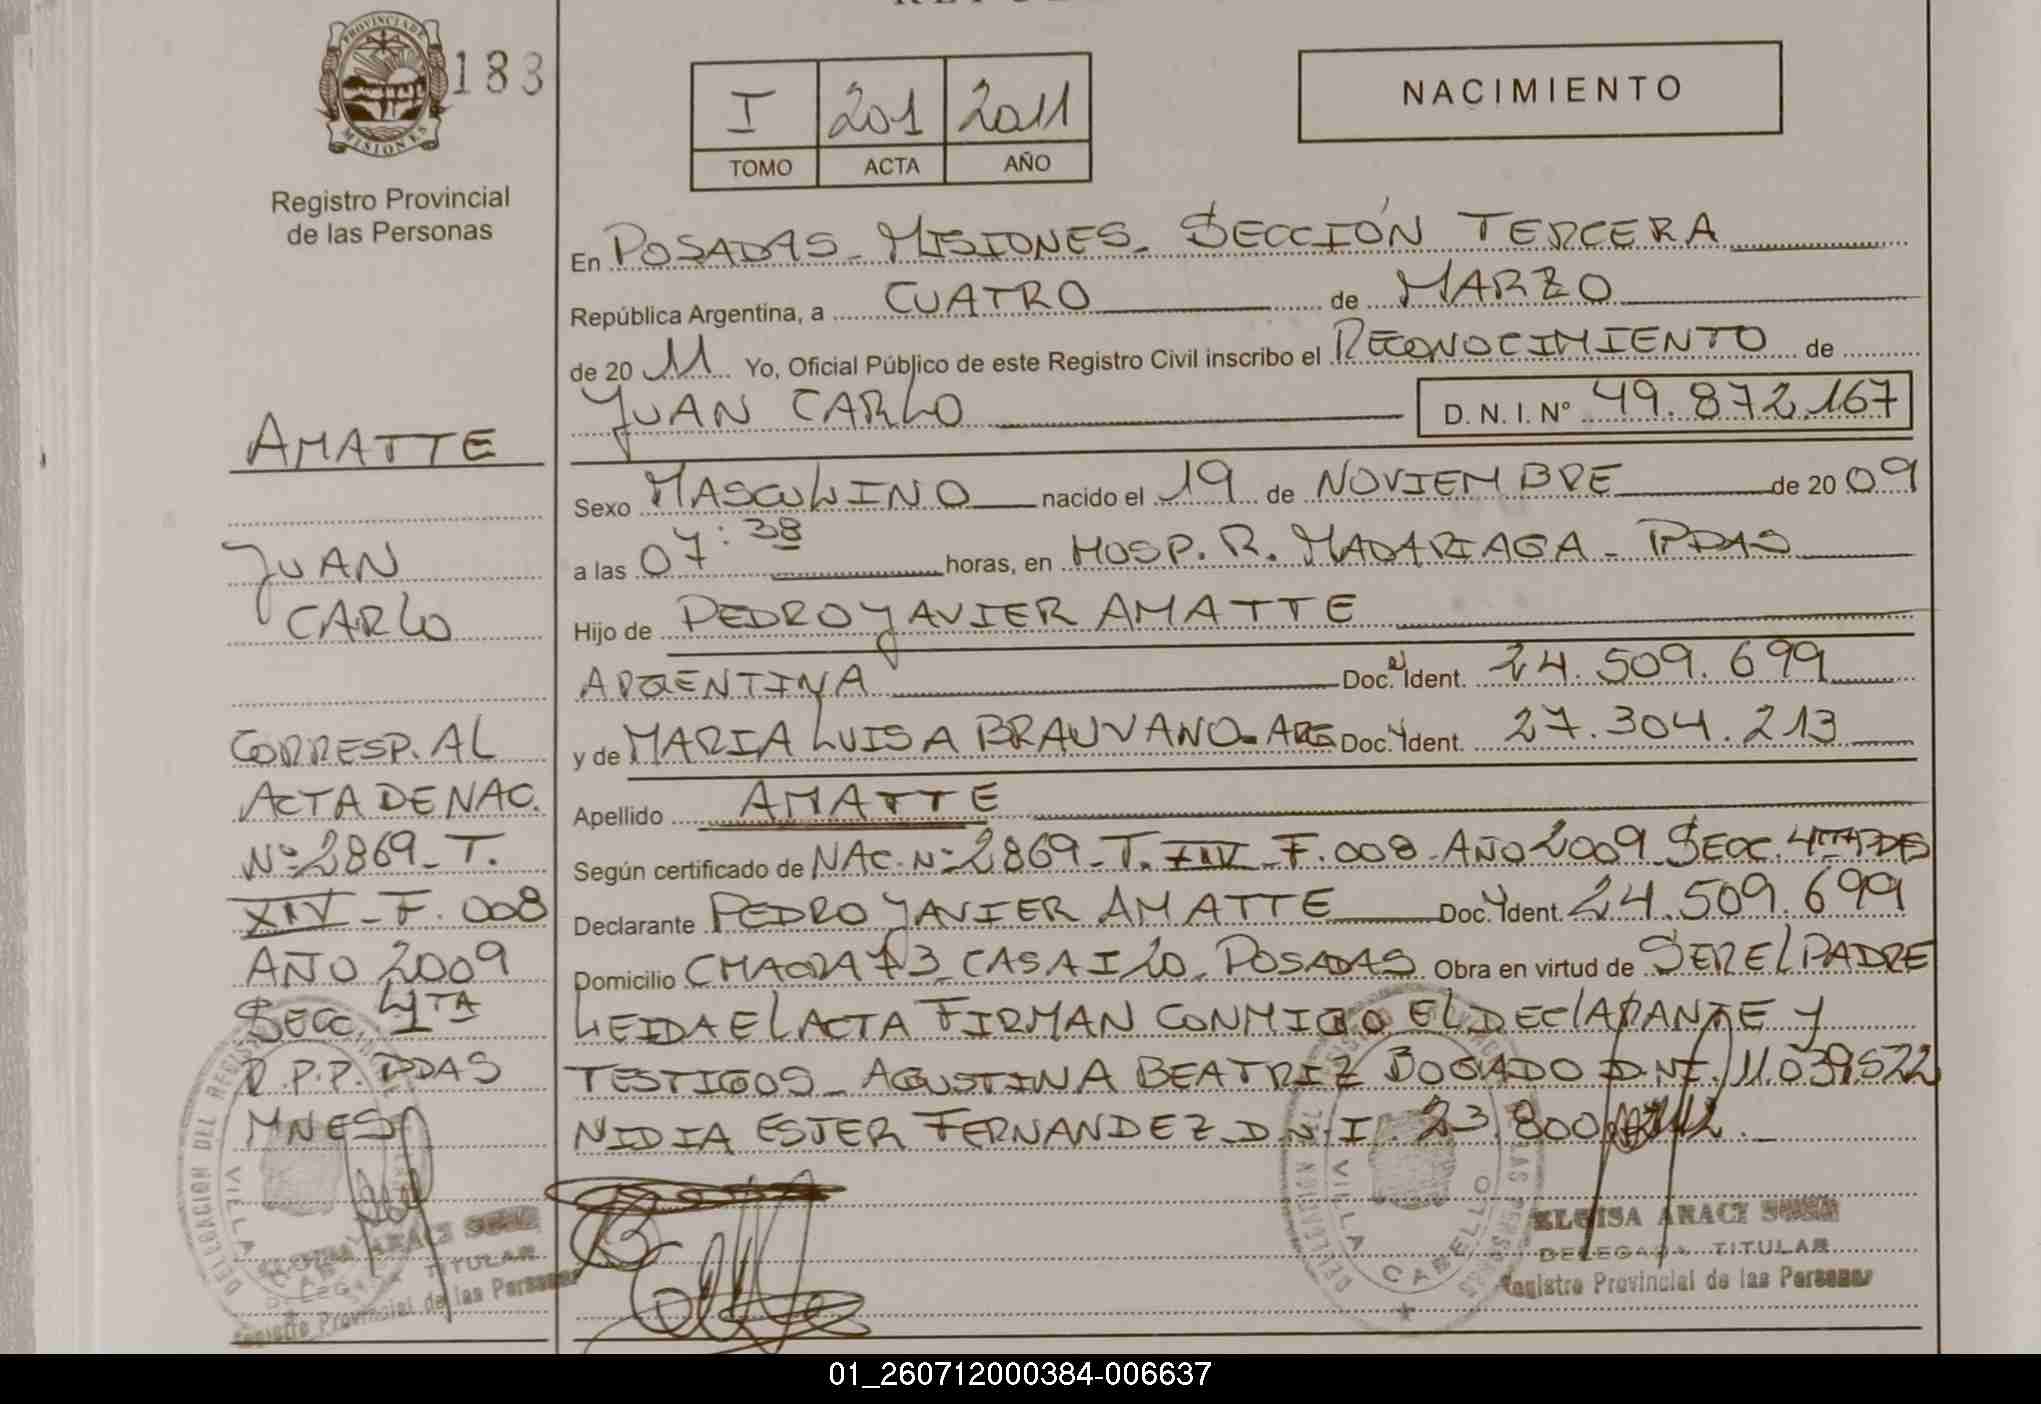 PROVINCIA DE
MISIONES
183
Registro Provincial
de las Personas
I 201 2011
TOMO ACTA AÑO
NACIMIENTO
En POSADAS - MISIONES - SECCIÓN TERCERA
República Argentina, a CUATRO de MARZO
de 20 11 Yo, Oficial Público de este Registro Civil inscribo el RECONOCIMIENTO de
JUAN CARLO D. N. I. N° 49.872.167
Sexo MASCULINO nacido el 19 de NOVIEMBRE de 20 09
a las 07:38 horas, en HOSP. R. MADARIAGA - PDAS
Hijo de PEDRO JAVIER AMATTE
ARGENTINA Doc. Ident. 24.509.699
y de MARIA LUISA BRAUVANO - ARG Doc. Ident. 27.304.213
Apellido AMATTE
Según certificado de NAC. N° 2869 - T. XIV - F. 008 - AÑO 2009 SECC. 4TA PDAS
Declarante PEDRO JAVIER AMATTE Doc. Ident. 24.509.699
Domicilio CHACRA 73 CASA I20 - POSADAS Obra en virtud de SER EL PADRE
LEIDA EL ACTA FIRMAN CONMIGO EL DECLARANTE Y
TESTIGOS - AGUSTINA BEATRIZ BOGADO D.N.I. 11.039.522
NIDIA ESTER FERNANDEZ D.N.I. 23.800
AMATTE
JUAN
CARLO
CORRESP. AL
ACTA DE NAC.
N° 2869 - T.
XIV - F. 008
AÑO 2009
SECC. 4TA
R.P.P. PDAS
MNES
DELEGACION DEL REGISTRO
VILLA CABELLO
ELOISA ARACI
DELEGADA TITULAR
Registro Provincial de las Personas
ARACI
TITULAR
Registro Provincial de las Personas
01_260712000384-006637